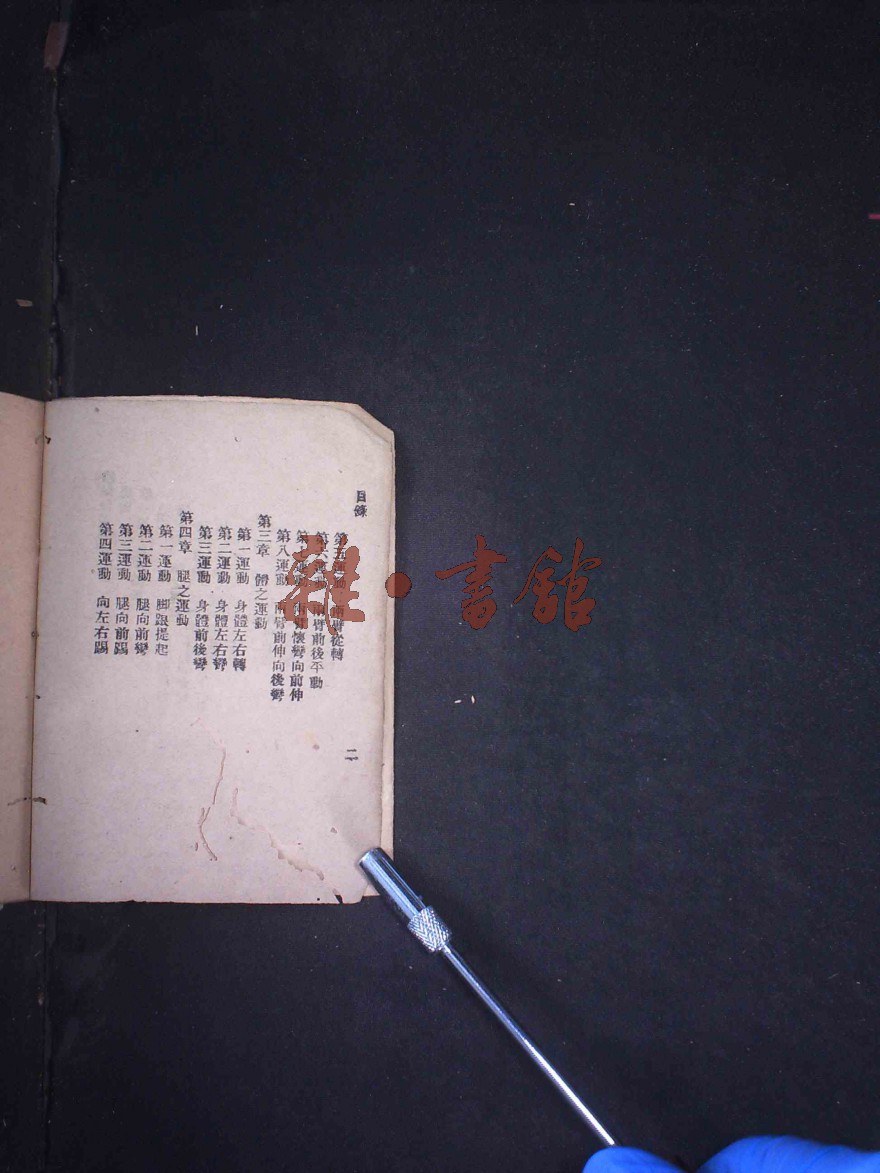 目錄
第五運動 兩臂從轉
第六運動 兩臂前後平動
第七運動 兩臂懷彎向前伸
第八運動 兩臂前伸向後彎
第三章 體之運動
第一運動 身體左右轉
第二運動 身體左右彎
第三運動 身體前後彎
第四章 腿之運動
第一運動 脚跟提起
第二運動 腿向前彎
第三運動 腿向前踢
第四運動 向左右踢
二
雜·書館